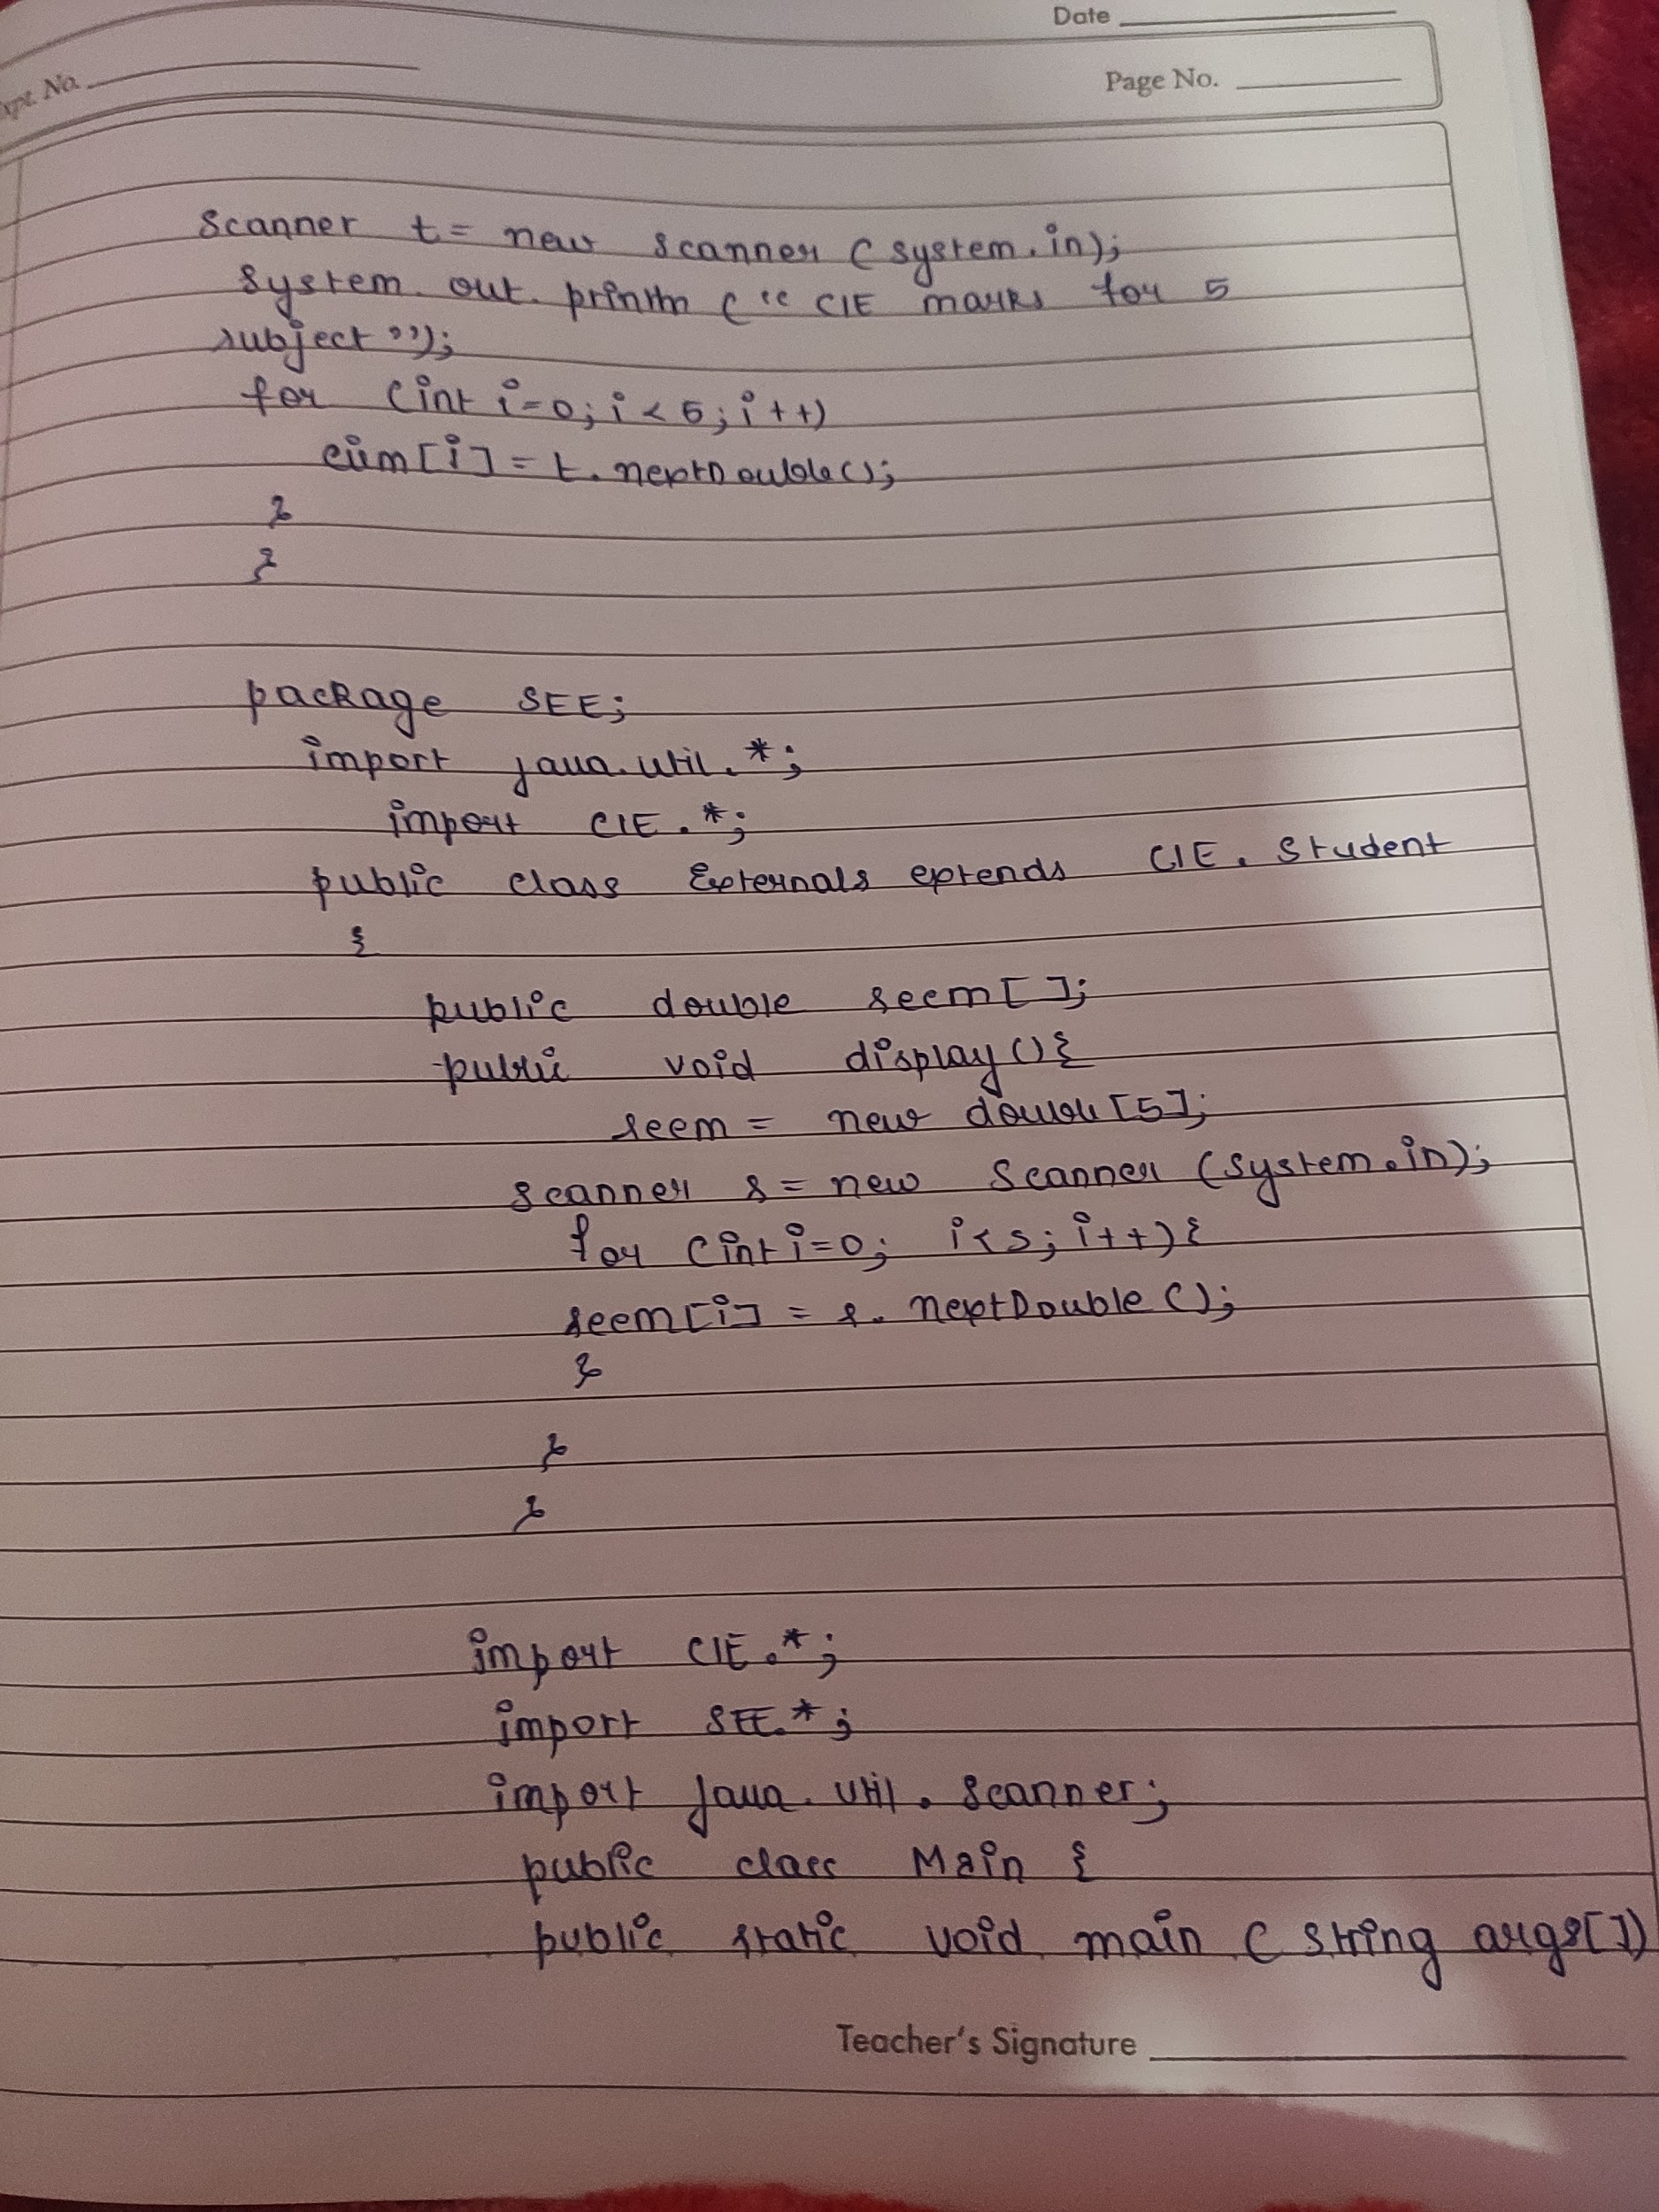 Date
Expt. No.
Page No.
Scanner t = new Scanner (System.in);
System.out.println ("CIE marks for 5
subject");
for (int i=0; i<5; i++)
ciem[i] = t.nextDouble();
}
}
package SEE;
import java.util.*;
import CIE.*;
public class Externals extends CIE.Student
{
public double seem[];
public void display(){
seem = new double[5];
Scanner s = new Scanner (System.in);
for (int i=0; i<5; i++){
seem[i] = s.nextDouble();
}
}
}
import CIE.*;
import SEE.*;
import java.util.Scanner;
public class Main {
public static void main (String args[])
Teacher's Signature